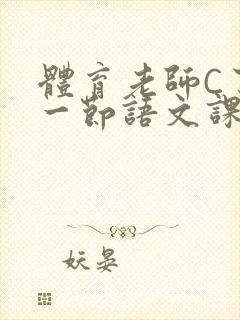 體育老師C了
一節語文課
妖晏